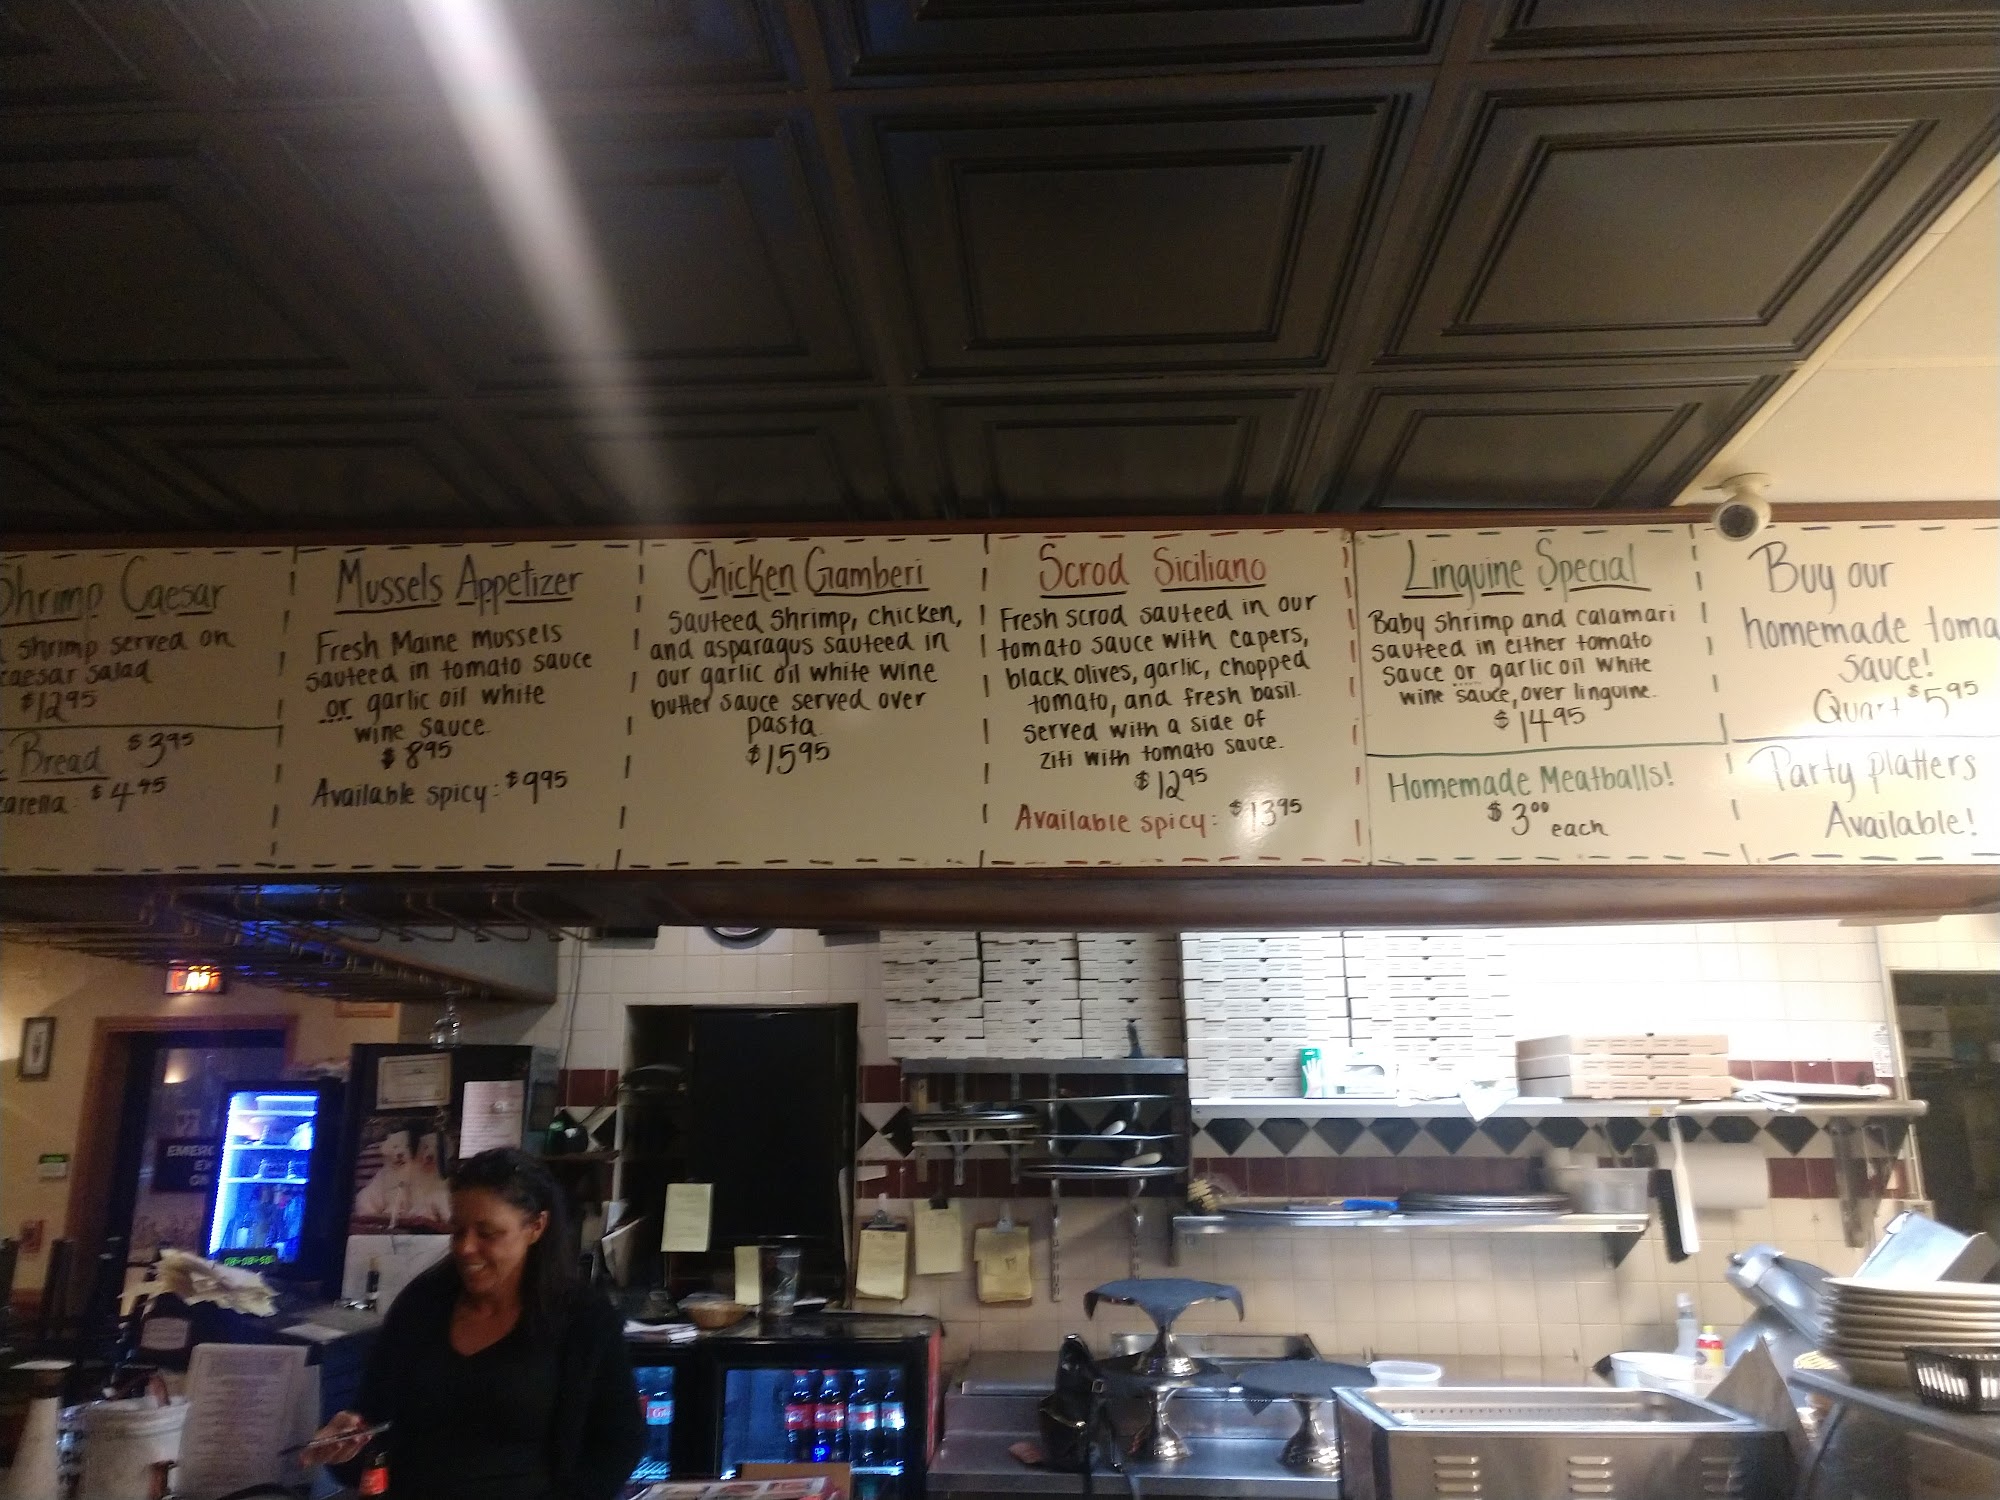 Shrimp Caesar
shrimp served on
caesar salad
$12.95
Bread $3.95
$4.95
Mussels Appetizer
Fresh Maine mussels
sauteed in tomato sauce
or garlic oil white
wine sauce.
$8.95
Available spicy: $9.95
Chicken Gamberi
Sauteed shrimp, chicken,
and asparagus sauteed in
our garlic oil white wine
butter sauce served over
pasta
$15.95
Scrod Siciliano
Fresh scrod sauteed in our
tomato sauce with capers,
black olives, garlic, chopped
tomato, and fresh basil.
Served with a side of
ziti with tomato sauce.
$12.95
Available spicy: $13.95
Linguine Special
Baby shrimp and calamari
sauteed in either tomato
sauce or garlic oil white
wine sauce, over linguine.
$14.95
Homemade Meatballs!
$3.00 each
Buy our
homemade toma
sauce!
Quart $5.95
Party platters
Available!